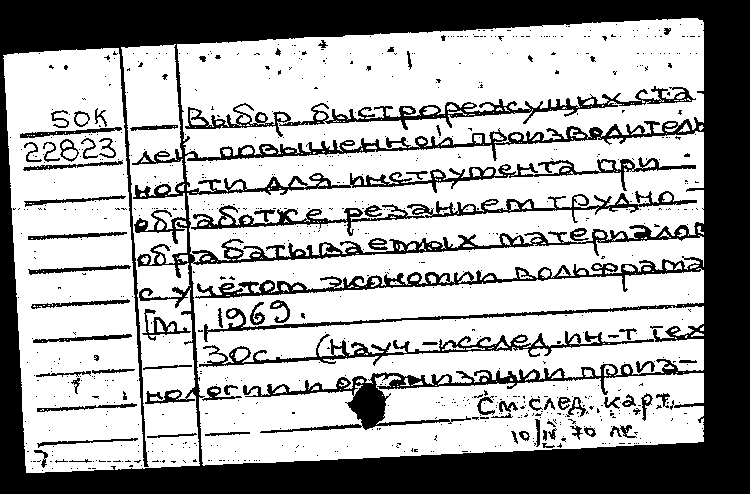 50К
22823
Выбор быстрорежущих ста-
лей повышенной производитель
ности для инструмента при
обработке резанием трудно-
обрабатываемых материалов
с учётом экономии вольфрама
[М.], 1969.
30с. (Науч.-исслед. ин-т тех
нологии и организации произ-
См. след. карт.
10/IV.70